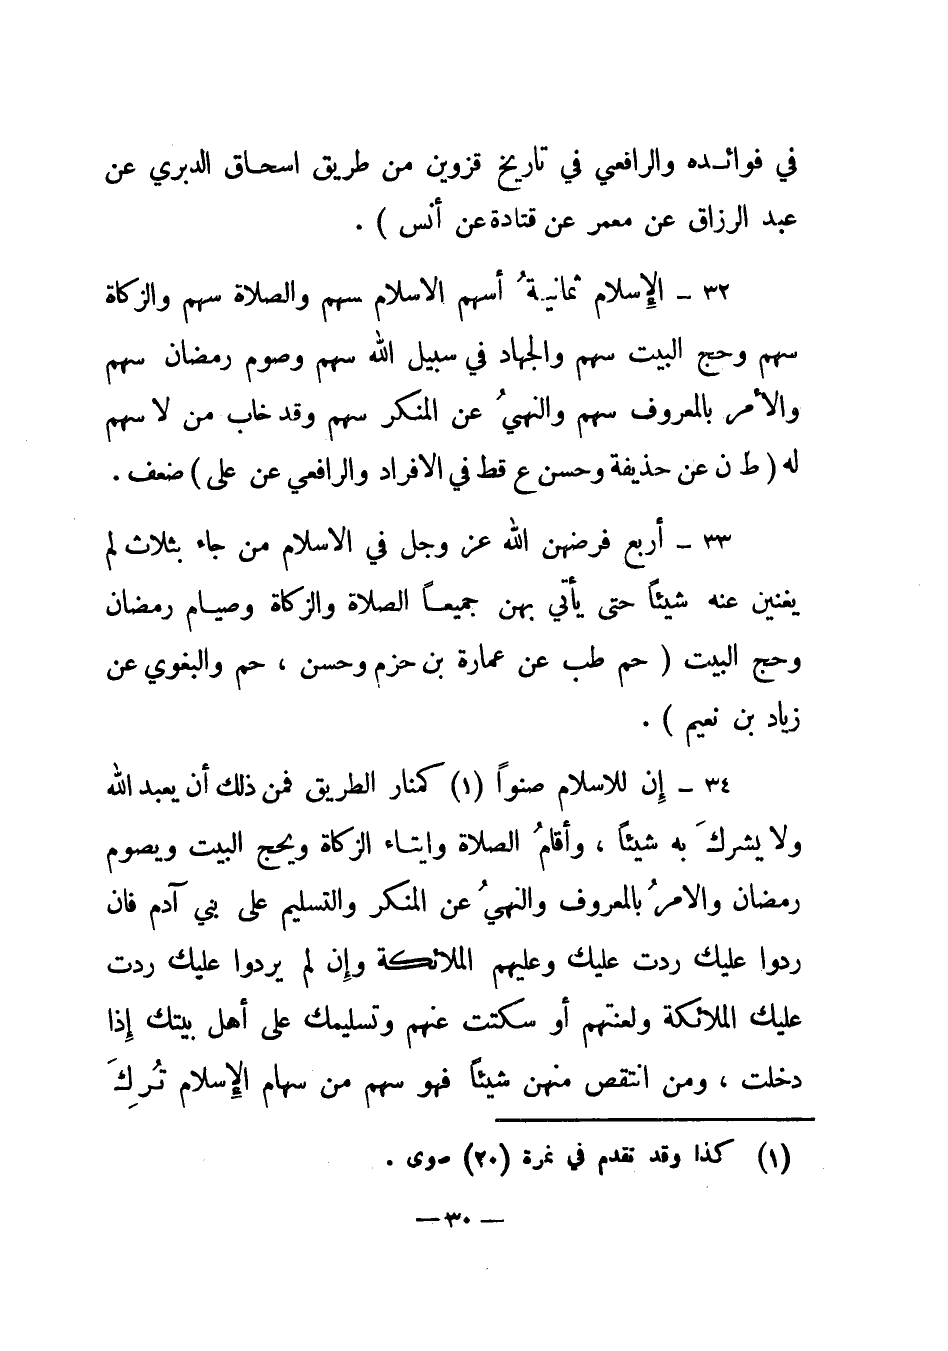 في فوائده والرافعي في تاريخ قزوين من طريق اسحاق الدبري عن
عبد الرزاق عن معمر عن قتادة عن أنس ) .
٣٢ – الإِسلام ثمانيةُ أسهم الاسلام سهم والصلاة سهم والزكاة
سهم وحج البيت سهم والجهاد في سبيل الله سهم وصوم رمضان سهم
والأمر بالمعروف سهم والنهيُ عن المنكر سهم وقد خاب من لا سهم
له ( ط ن عن حذيفة وحسن ع قط في الافراد والرافعي عن على ) ضعف .
٣٣ – أربع فرضهن الله عز وجل في الاسلام من جاء بثلاث لم
يغنين عنه شيئاً حتى يأتي بهن جميعاً الصلاة والزكاة وصيام رمضان
وحج البيت ( حم طب عن عمارة بن حزم وحسن ، حم والبغوي عن
زياد بن نعيم ) .
٣٤ – إن للاسلام صنواً (١) كمنار الطريق فمن ذلك أن يعبد الله
ولا يشركَ به شيئاً ، وأقامُ الصلاة وايتاء الزكاة ويحج البيت ويصوم
رمضان والامرُ بالمعروف والنهيُ عن المنكر والتسليم على بني آدم فان
ردوا عليك ردت عليك وعليهم الملائكة وإن لم يردوا عليك ردت
عليك الملائكة ولعنتهم أو سكتت عنهم وتسليمك على أهل بيتك إذا
دخلت ، ومن انتقص منهن شيئاً فهو سهم من سهام الإِسلام تُرِكَ
(١) كذا وقد تقدم في نمرة (٢٠) صوى .
— ٣٠ —